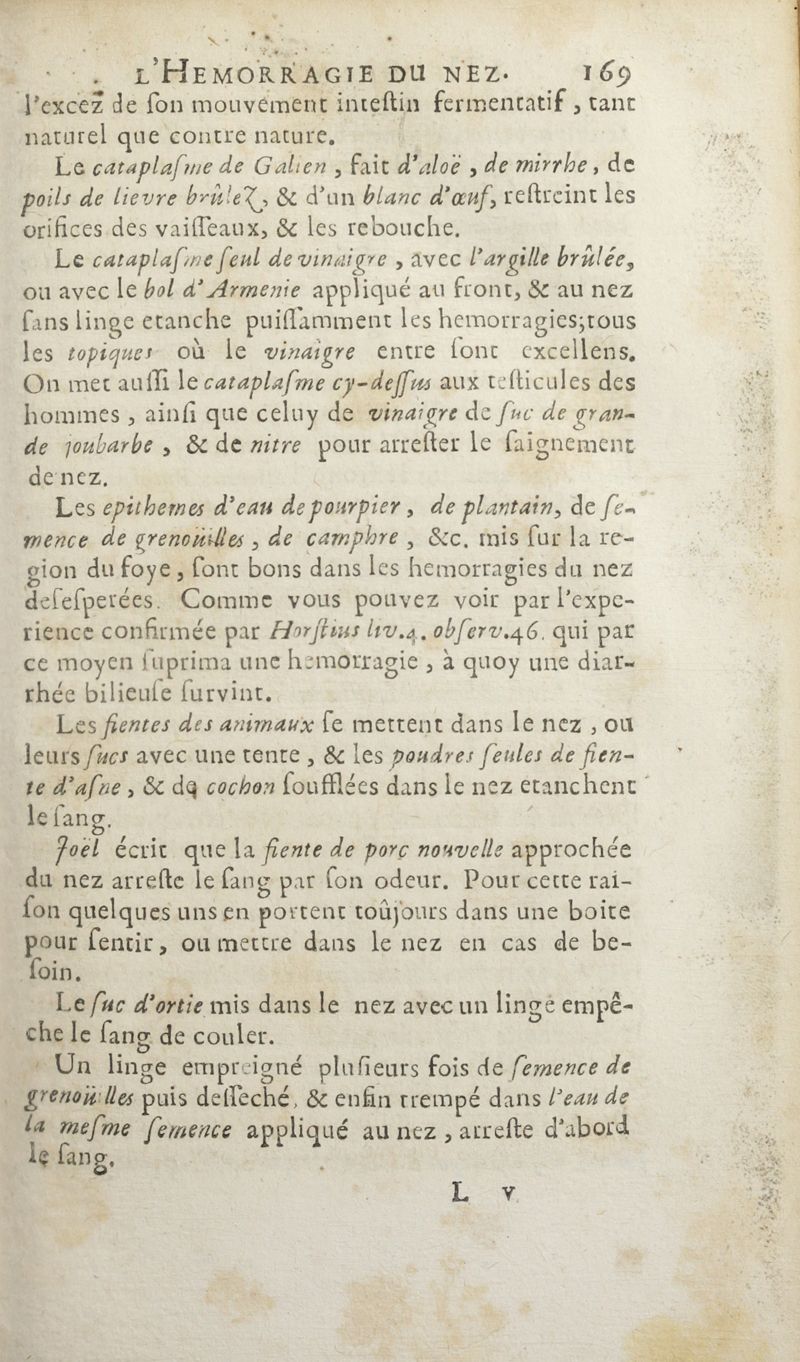 L'HEMORRAGIE DU NEZ. 169
l'excez de ſon mouvement inteſtin fermentatif, tant
naturel que contre nature.
Le cataplaſme de Galien, fait d'aloë, de mirrhe, de
poils de lievre brûlez, & d'un blanc d'œuf, reſtreint les
orifices des vaiſſeaux, & les rebouche.
Le cataplaſme ſeul de vinaigre, avec l'argille brûlée,
ou avec le bol d'Armenie appliqué au front, & au nez
ſans linge etanche puiſſamment les hemorragies; tous
les topiques où le vinaigre entre ſont excellens.
On met auſſi le cataplaſme cy-deſſus aux teſticules des
hommes, ainſi que celuy de vinaigre de ſuc de gran-
de joubarbe, & de nitre pour arreſter le ſaignement
de nez.
Les epithemes d'eau de pourpier, de plantain, de ſe-
mence de grenoüilles, de camphre, &c. mis ſur la re-
gion du foye, ſont bons dans les hemorragies du nez
deſeſperées. Comme vous pouvez voir par l'expe-
rience confirmée par Horſtius liv.4. obſerv.46. qui par
ce moyen ſuprima une hemorragie, à quoy une diar-
rhée bilieuſe ſurvint.
Les fientes des animaux ſe mettent dans le nez, ou
leurs ſucs avec une tente, & les poudres ſeules de fien-
te d'aſne, & dq cochon ſoufflées dans le nez etanchent
le ſang.
Joël écrit que la fiente de porc nouvelle approchée
du nez arreſte le ſang par ſon odeur. Pour cette rai-
ſon quelques uns en portent toûjours dans une boite
pour ſentir, ou mettre dans le nez en cas de be-
ſoin.
Le ſuc d'ortie mis dans le nez avec un linge empê-
che le ſang de couler.
Un linge empreigné pluſieurs fois de ſemence de
grenoüilles puis deſſeché, & enfin trempé dans l'eau de
la meſme ſemence appliqué au nez, arreſte d'abord
le ſang.
L v